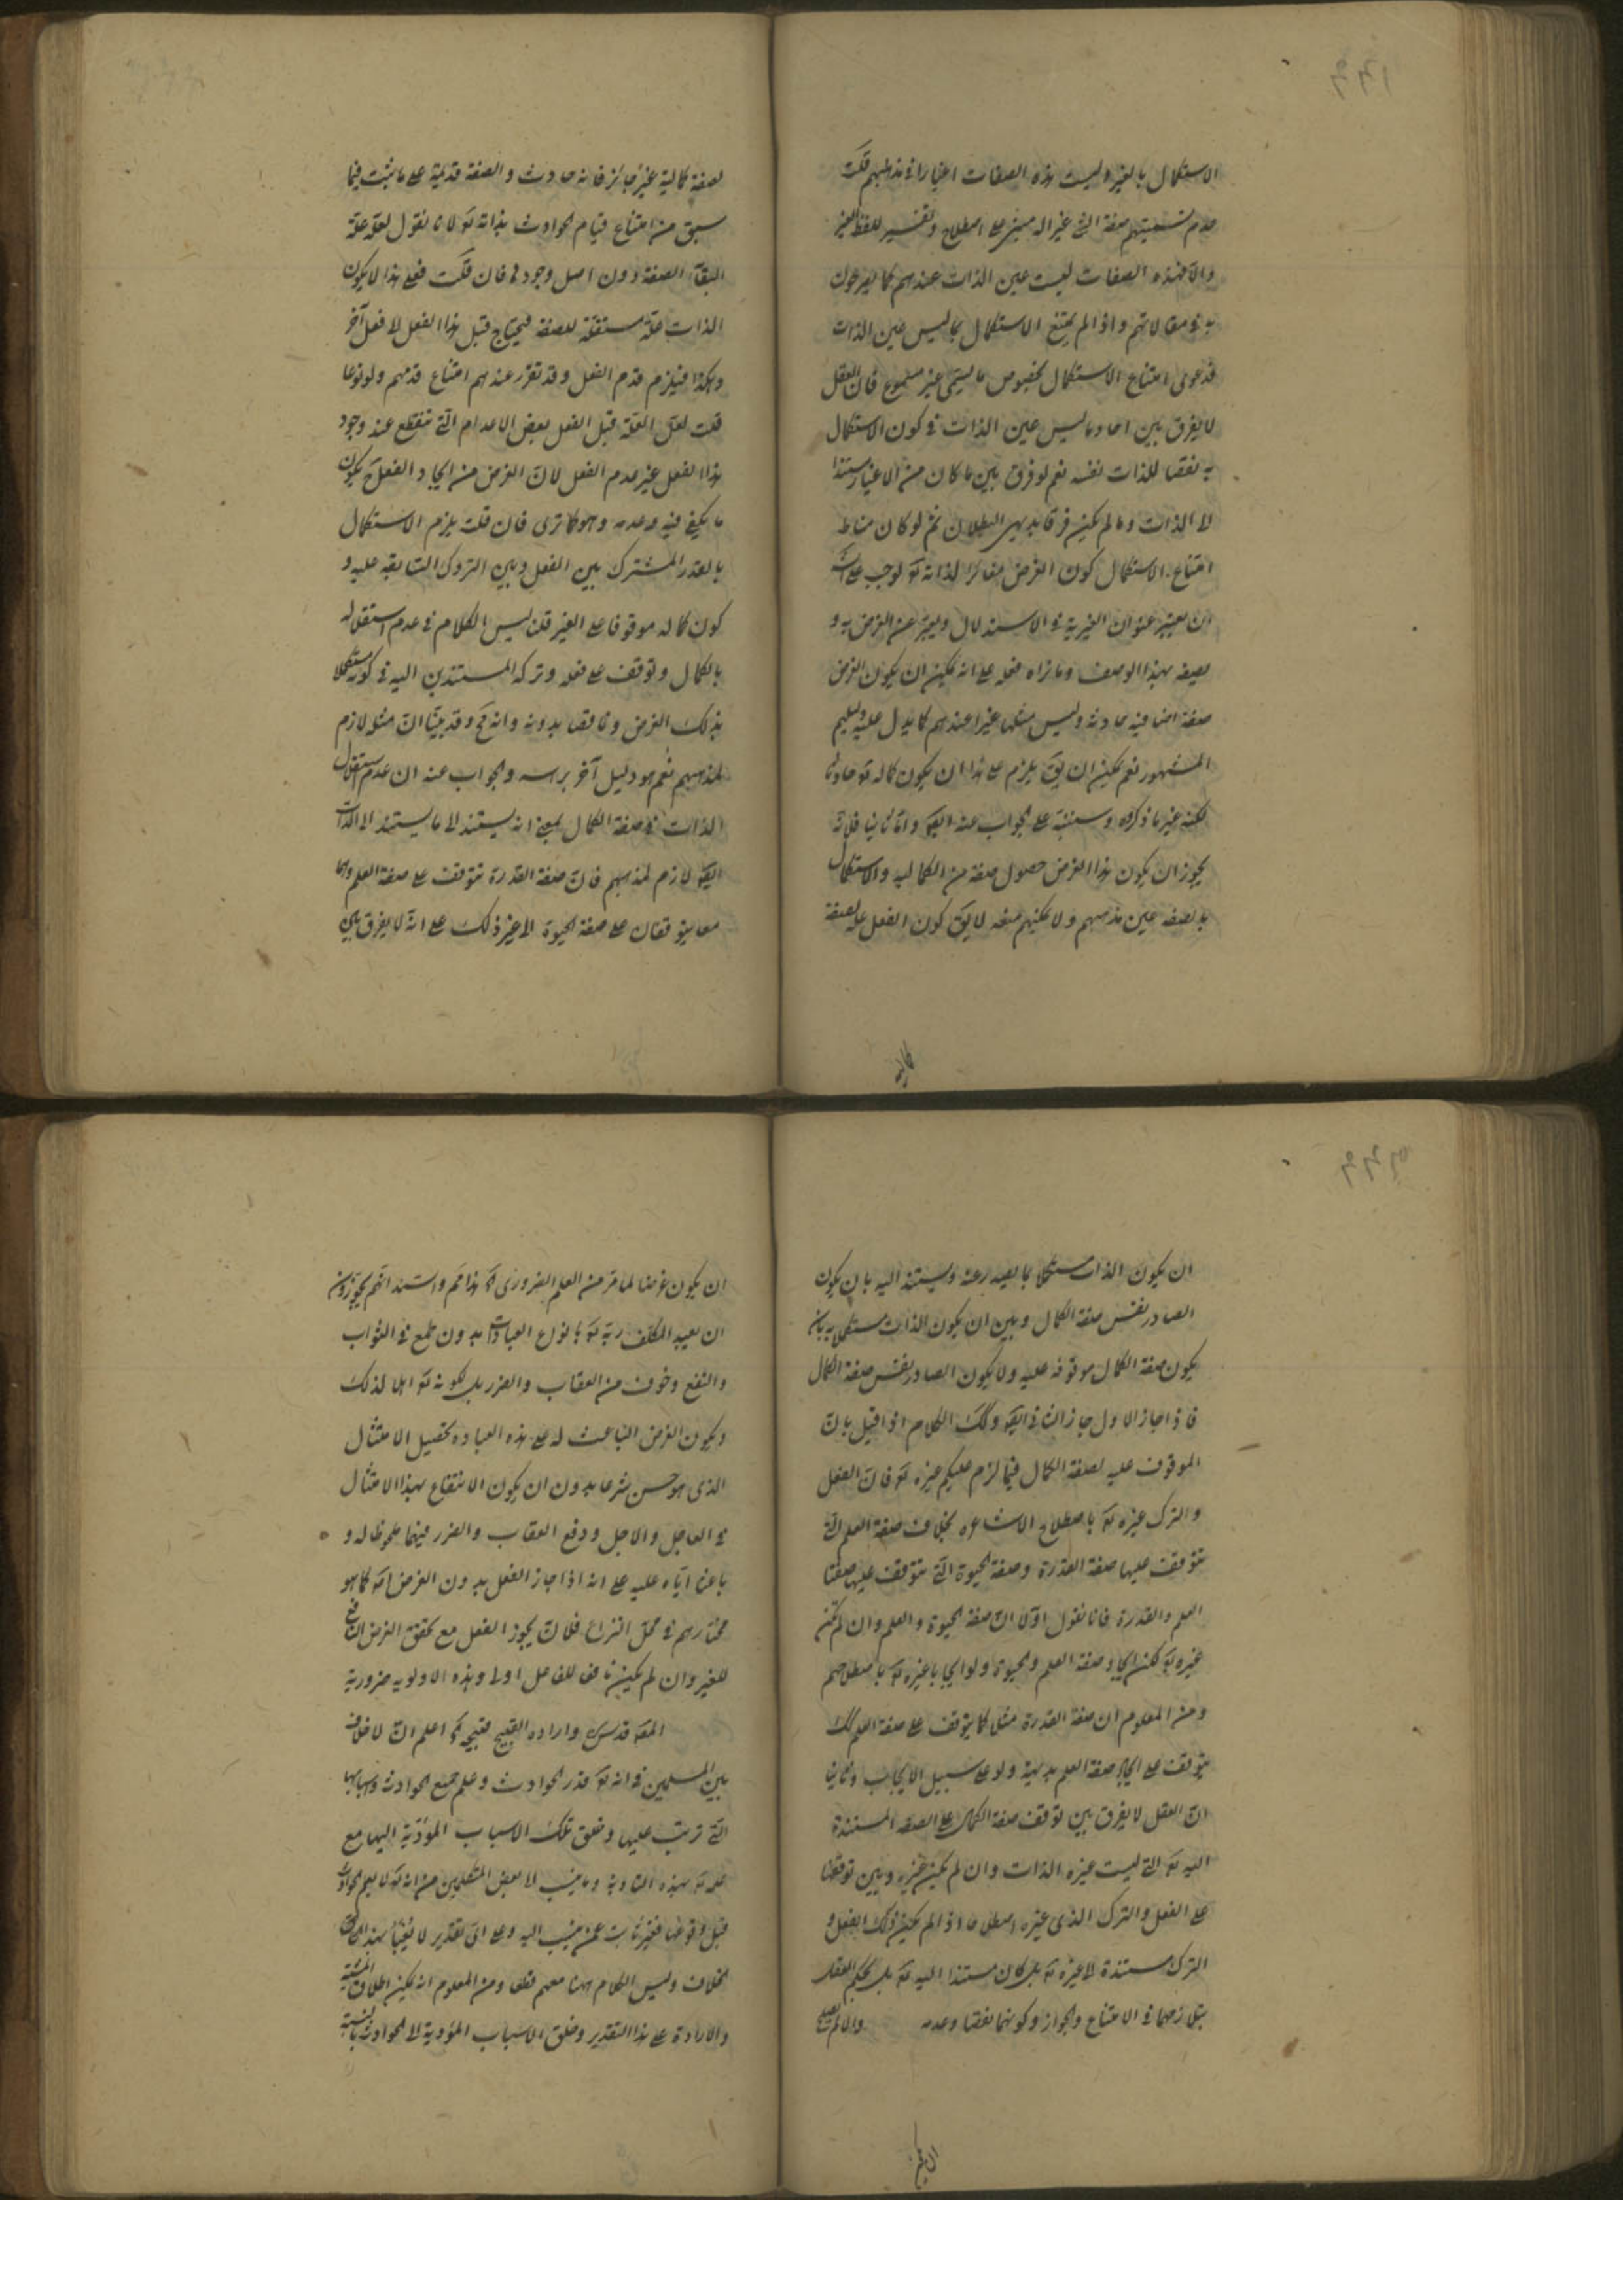 الاستكمال بالغير وليست هذه الصفات اغيارا في مذهبهم قلت
عدم تسميتهم صفة الشئ غيرا له مبني على اصطلاح وتفسير للفظ الغير
والا فهذه الصفات ليست عين الذات عندهم كما يصرحون
به في مقالاتهم واذا لم يمتنع الاستكمال بما ليس عين الذات
فدعوى امتناع الاستكمال بخصوص ما يسمى غير مسموع فان العقل
لا يفرق بين احاد ما ليس عين الذات في كون الاستكمال
به نقصا للذات نفسه نعم لو فرق بين ما كان من الاغيار مستندا
الى الذات وما لم يكن فرقا بديهي البطلان ثم لو كان مناط
امتناع الاستكمال كون الغرض مغايرا لذاته تع لوجب على
ان يعتبر عنوان الغيرية في الاستدلال ويعبر عن الغرض به و
يصفه بهذا الوصف وما نراه فعله على انه يمكن ان يكون الغرض
صفة اضافية حادثة وليس مثلها غيرا عندهم كما يدل عليه دليلهم
المشهور نعم يمكن ان يق يلزم على هذا ان يكون كماله تع حادثا
لكنه غير ما ذكروه وسننبه على الجواب عنه ايضا واما ثانيا فلانه
يجوز ان يكون هذا الغرض حصول صفة من الكمالية والاستكمال
بالصفة عين مذهبهم ولا يمكنهم منعه لا يق كون الفعل علة لصفة
كمالية
لصفة كمالية غير جائز فانه حادث والصفة قديمة على ما يثبت فيما
سبق من امتناع قيام الحوادث بذاته تع لانا نقول لعله علة
البقاء الصفة دون اصل وجودها فان قلت فعلى هذا لا يكون
الذات علة مستقلة للصفة فيحتاج قبل هذا الفعل الى فعل آخر
وهكذا فيلزم قدم الفعل وقد تقرر عندهم امتناع قدمهم ولو نوعا
قلت لعل العلة قبل الفعل بعض الاعدام التي تنقطع عند وجود
هذا الفعل غير عدم الفعل لان الغرض من ايجاد الفعل ح يكون
ما يكفي فيه وعدمه وهو كما ترى فان قلت يلزم الاستكمال
بالقدر المشترك بين الفعل وبين التروك السابقة عليه و
كون كماله موقوفا على الغير قلنا ليس الكلام في عدم استقلاله
بالكمال وتوقف على فعله وتركه المستندين اليه في كونه مستكملا
بذلك الغرض وناقصا بدونه وانه مح وقد بينا ان مثله لازم
لمذهبهم نعم هو دليل آخر برأسه والجواب عنه ان عدم استقلال
الذات في صفة الكمال بمعنى انه يستند الى ما يستند الى الذات
ايضا لازم لمذهبهم فان صفة القدرة تتوقف على صفة العلم وهما
معا يتوقفان على صفة الحيوة الى غير ذلك على انه لا يفرق بين
ان يكون الذات مستكملا بما يصدر عنه ويستند اليه بان يكون
الصادر نفس صفة الكمال وبين ان يكون الذات مستكملا به بان
يكون صفة الكمال موقوفة عليه ولا يكون الصادر نفس صفة الكمال
فاذا جاز الاول جاز الثاني ايضا وكك الكلام اذا قيل بان
الموقوف عليه لصفة الكمال فيما لزم عليكم غيره تع فان الفعل
والترك غيره تع باصطلاح الاشاعره بخلاف صفة العلم التي
تتوقف عليها صفة القدرة وصفة الحيوة التي تتوقف عليها صفتا
العلم والقدرة فانا نقول اولا ان صفة الحيوة والعلم وان لم تكن
غيره تع لكن ايجاد صفة العلم والحيوة ولو ايجابا غيره تع باصطلاحهم
ومن المعلوم ان صفة القدرة مثلا كما يتوقف على صفة العلم كك
يتوقف على ايجاد صفة العلم بديهة ولو على سبيل الايجاب وثانيا
ان العقل لا يفرق بين توقف صفة الكمال على الصفة المستندة
اليه تع التي ليست غيره الذات وان لم يكن غيره وبين توقفها
على الفعل والترك الذي غيره اصطلاحا اذا لم يكن ذلك الفعل و
الترك مستندة الى غيره تع بل كان مستندا اليه تع بل يحكم العقل
بتلازمهما في الامتناع والجواز وكونهما نقصا وعدمه والا لم يصلح
ان يكون
ان يكون غرضا لما مر من العلم الضروري اه هذا مم واستند انهم يجوزون
ان يعبد المكلف ربه تع بانواع العبادات بدون طمع في الثواب
والنفع وخوف من العقاب والضرر بل لكونه تع اهلا لذلك
ويكون الغرض الباعث له على هذه العباده تحصيل الامتثال
الذي هو حسن شرعا بدون ان يكون الانتفاع بهذا الامتثال
في العاجل والاجل ودفع العقاب والضرر فيهما ملحوظا له و
باعثا اياه عليه على انه اذا جاز الفعل بدون الغرض اصلا كما هو
مختارهم في محل النزاع فلان يجوز الفعل مع تحقق الغرض النافع
للغير وان لم يكن نافعا للفاعل اولى وهذه الاولوية ضرورية
المص قدس سره وارادة القبيح قبيحة اه اعلم ان لا خلاف
بين المسلمين في انه تع قدر الحوادث وعلم جميع الحوادث واسبابها
التي ترتب عليها وخلق تلك الاسباب المؤدية اليها مع
علمه تع بهذه التادية وما ينسب الى بعض المتكلمين من انه تع لا يعلم الحوادث
قبل وقوعها فغير ثابت عمن ينسب اليه وعلى اي تقدير لا يعبأ بهذا
الخلاف وليس الكلام ههنا معهم قطعا ومن المعلوم انه يمكن اطلاق المشية
والارادة على هذا التقدير وخلق الاسباب المؤدية الى الحوادث بالنسبة